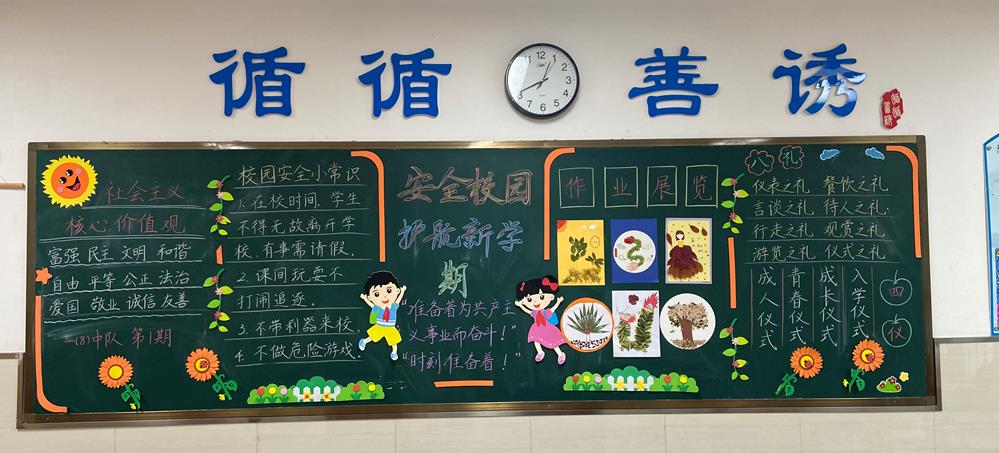 循循善诱
循循
善诱
12
1
2
3
4
5
6
7
8
9
10
11
社会主义
核心价值观
富强 民主 文明 和谐
自由 平等 公正 法治
爱国 敬业 诚信 友善
二(8)中队 第1期
校园安全小常识
1.在校时间,学生
不得无故离开学
校.有事需请假.
2.课间玩耍不
打闹追逐.
3.不带利器来校.
4.不做危险游戏.
安全校园
护航新学
期
“准备着为共产主
义事业而奋斗!”
“时刻准备着!”
作业展览
八礼
仪表之礼 餐饮之礼
言谈之礼 待人之礼
行走之礼 观赏之礼
游览之礼 仪式之礼
四仪
入学仪式
成长仪式
青春仪式
成人仪式